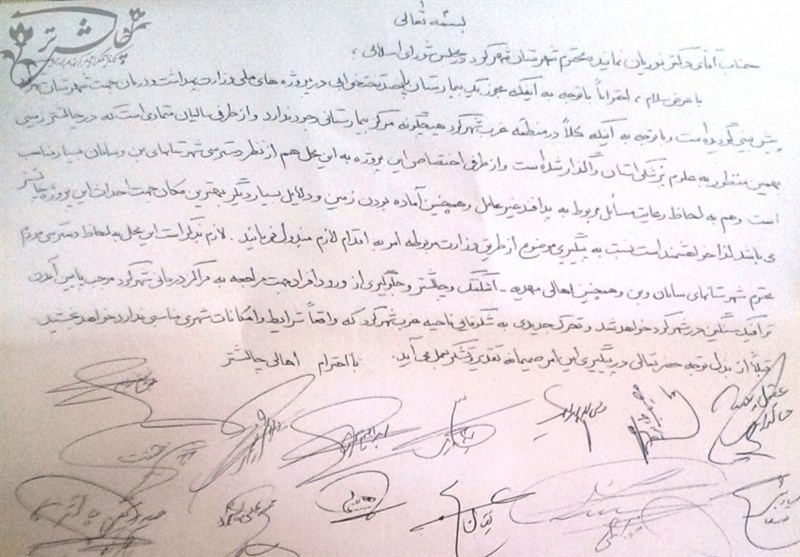 بسمه تعالی
چالشتر
جناب آقای دکتر نوریان نماینده محترم شهرستان شهرکرد در مجلس شورای اسلامی ،
با عرض سلام ، احتراماً با توجه به اینکه مجوز یک بیمارستان پانصد تختخوابی در پروژه های ملی وزارت بهداشت و درمان جهت شهرستان
پیش بینی گردیده است و با توجه به اینکه کلاً در منطقه غرب شهرکرد هیچگونه مرکز بیمارستانی وجود ندارد و از طرفی سالیان متمادی است که در چالشتر زمینی
بهمین منظور به علوم پزشکی استان واگذار شده است و از طرفی اختصاص این پروژه به این محل هم از نظر دسترسی شهرستانهای بن و سامان بسیار مناسب
است و هم به لحاظ رعایت مسائل مربوط به پدافند غیرعامل و همچنین آماده بودن زمین و دلایل بسیار دیگر بهترین مکان جهت احداث این پروژه چالشتر
می باشد لذا خواهشمند است نسبت به پیگیری موضوع از طریق وزارت مربوطه امر به اقدام لازم مبذول فرمائید . لازم بذکر است این محل به لحاظ دسترسی مردم
محترم شهرستانهای سامان و بن و همچنین اهالی مهدیه - اشکفتک و چالشتر و جلوگیری از ورود افراد جهت مراجعه به مراکز درمانی شهرکرد موجب پایین آمدن
ترافیک سنگین در شهرکرد خواهد شد و تحرک جدیدی به شکوفایی ناحیه غرب شهرکرد که واقعاً شرایط و امکانات شهری مناسبی ندارد خواهد بخشید
قبلاً از بذل توجه حضرتعالی در پیگیری این امر صمیمانه تقدیر و تشکر بعمل می آید. با احترام اهالی چالشتر